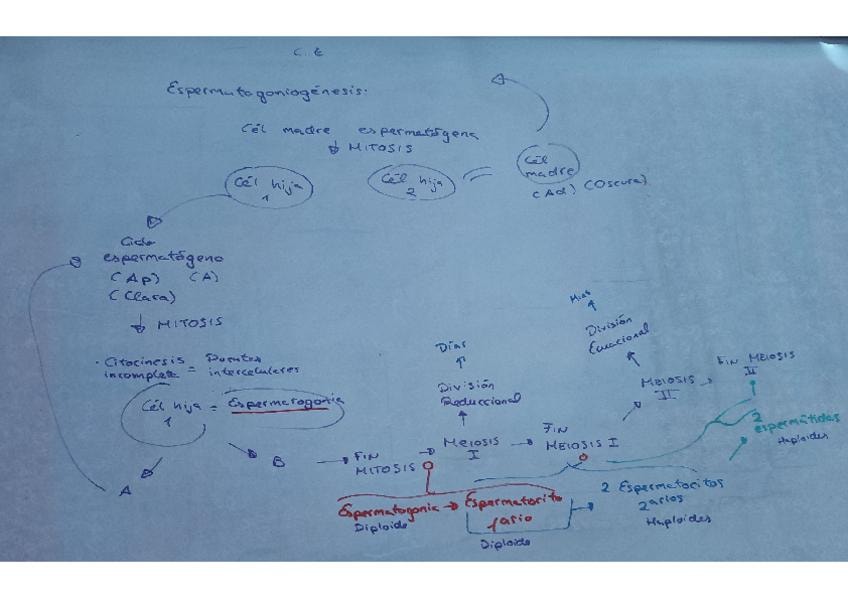 C. E
Espermatogoniogénesis:
Cél madre espermatógena
↓ MITOSIS
Cél hija
1
Cél hija
2
=
Cél
madre
(Ad) (Oscura)
Ciclo
espermatógeno
(Ap) (A)
(Clara)
↓ MITOSIS
· Citocinesis = Puentes
incompleta intercelulares
Cél hija = Espermatogonia
1
A
B
FIN
MITOSIS
Días
División
Reduccional
MEIOSIS
I
FIN
MEIOSIS I
División
Ecuacional
MEIOSIS
II
FIN MEIOSIS
II
2
espermátidas
Haploides
Espermatogonia → Espermatocito
Diploide
1ario
Diploide
2 Espermatocitos
2arios
Haploides